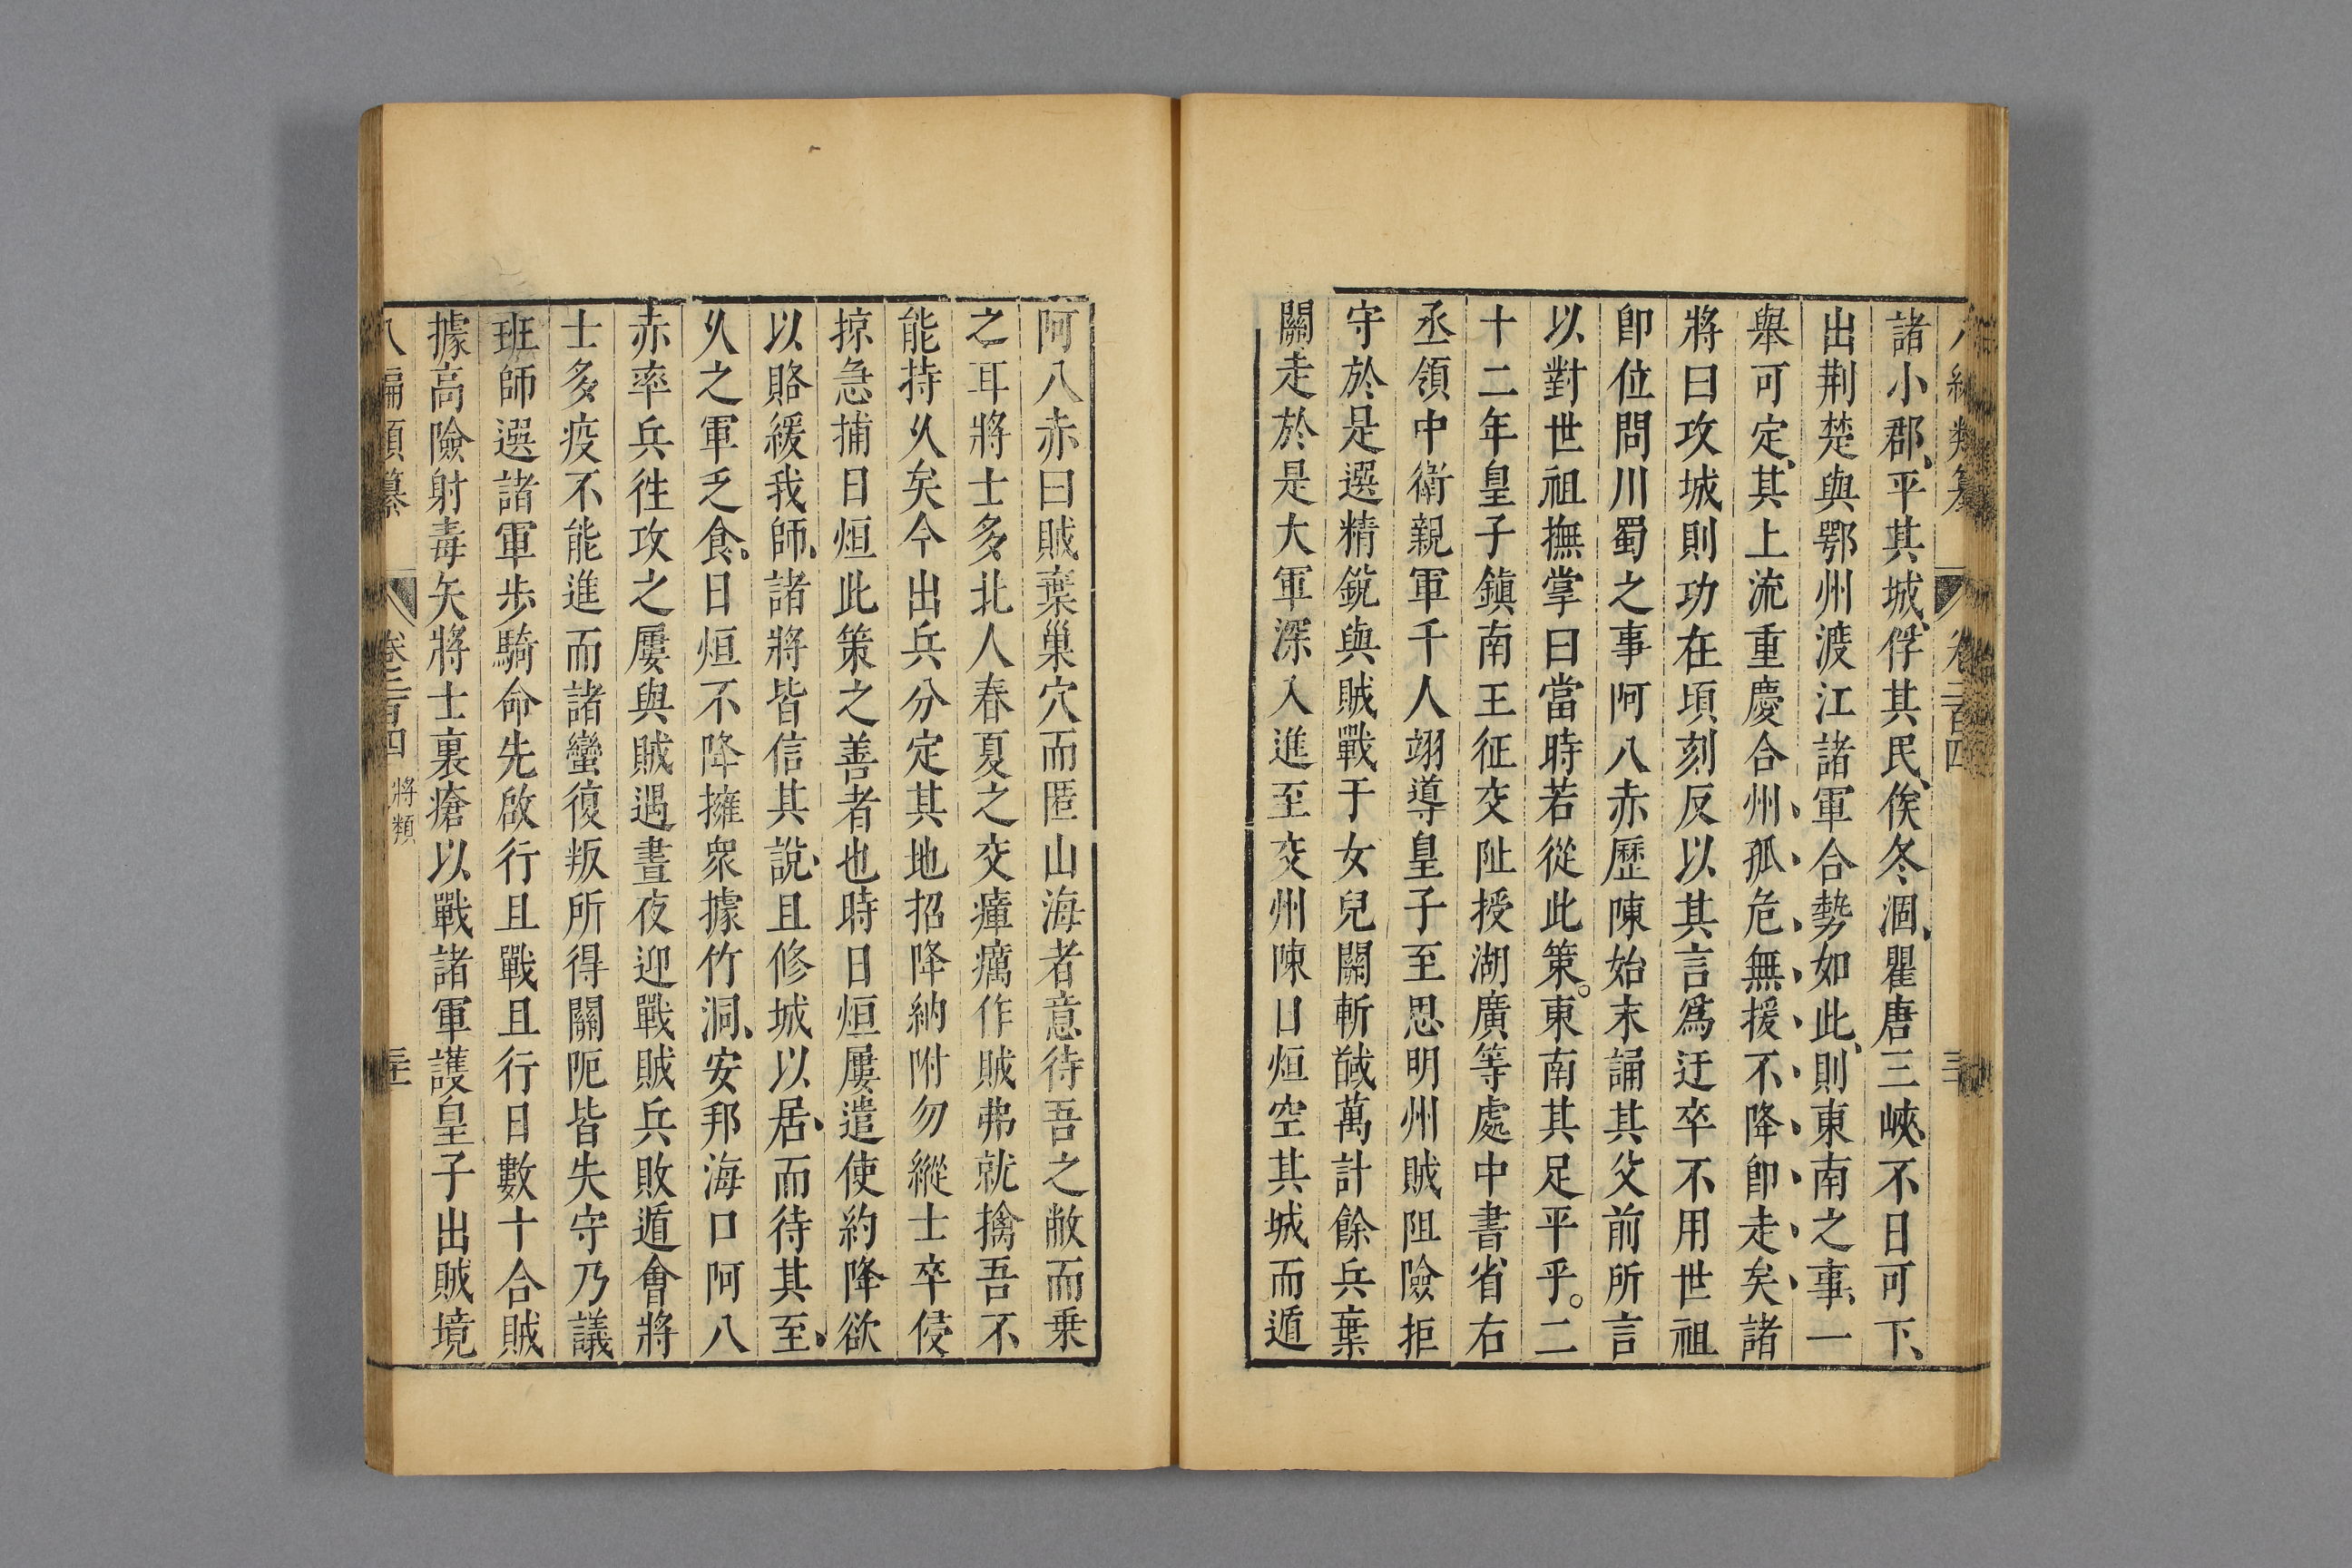 諸小郡、平其城、俘其民、俟冬涸、瞿唐三峽、不日可下、
出荆楚與鄂州渡江諸軍合勢如此、則東南之事、一
舉可定、其上流重慶合州、孤、危、無、援、不、降、卽、走、矣、諸
將曰攻城則功在頃刻反以其言爲迂卒不用世祖
卽位問川蜀之事阿八赤歷陳始末誦其父前所言
以對世祖撫掌曰當時若從此策。東南其足平乎。二
十二年皇子鎮南王征交阯授湖廣等處中書省右
丞領中衛親軍千人翊導皇子至思明州賊阻險拒
守於是選精銳與賊戰于女兒關斬馘萬計餘兵棄
關走於是大軍深入進至交州陳日烜空其城而遁
阿八赤曰賊棄巢穴而匿山海者意待吾之敝而乗
之耳將士多北人春夏之交瘴癘作賊弗就擒吾不
能持久矣今出兵分定其地招降納附勿縱士卒侵
掠急捕日烜此策之善者也時日烜屢遣使約降欲
以賂緩我師、諸將皆信其說、且修城以居、而待其至、
久之軍乏食。日烜不降擁衆據竹洞、安邦海口阿八
赤率兵徃攻之屢與賊遇晝夜迎戰賊兵敗遁會將
士多疫不能進而諸蠻復叛所得關阨皆失守乃議
班師選諸軍步騎命先啟行且戰且行日數十合賊
據高險射毒矢將士裹瘡以戰諸軍護皇子出賊境
八編類纂 卷二百四 將類